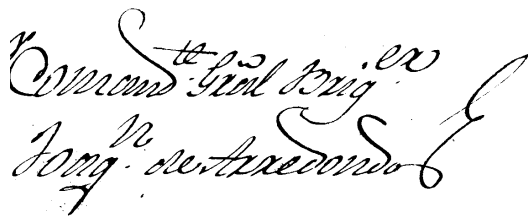 Comand.te Gral Brig.er
Joaq.n de Arredondo